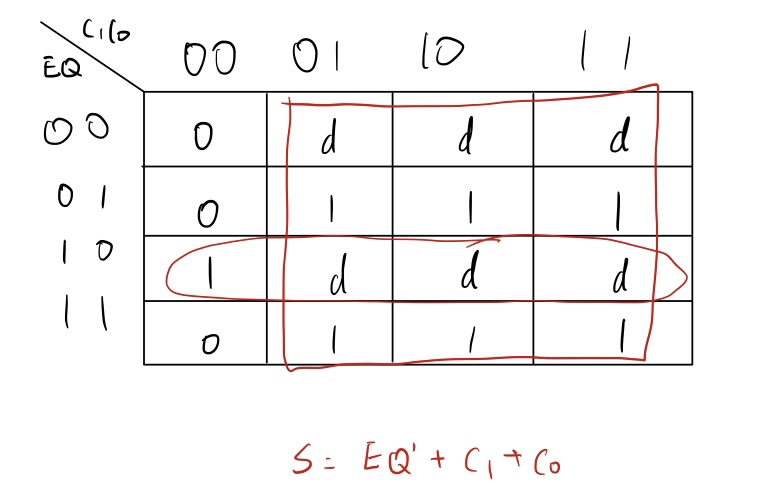 C₁C₀
00 01 10 11
EQ
00 0 d d d
01 0 1 1 1
10 1 d d d
11 0 1 1 1
S = EQ' + C₁ + C₀